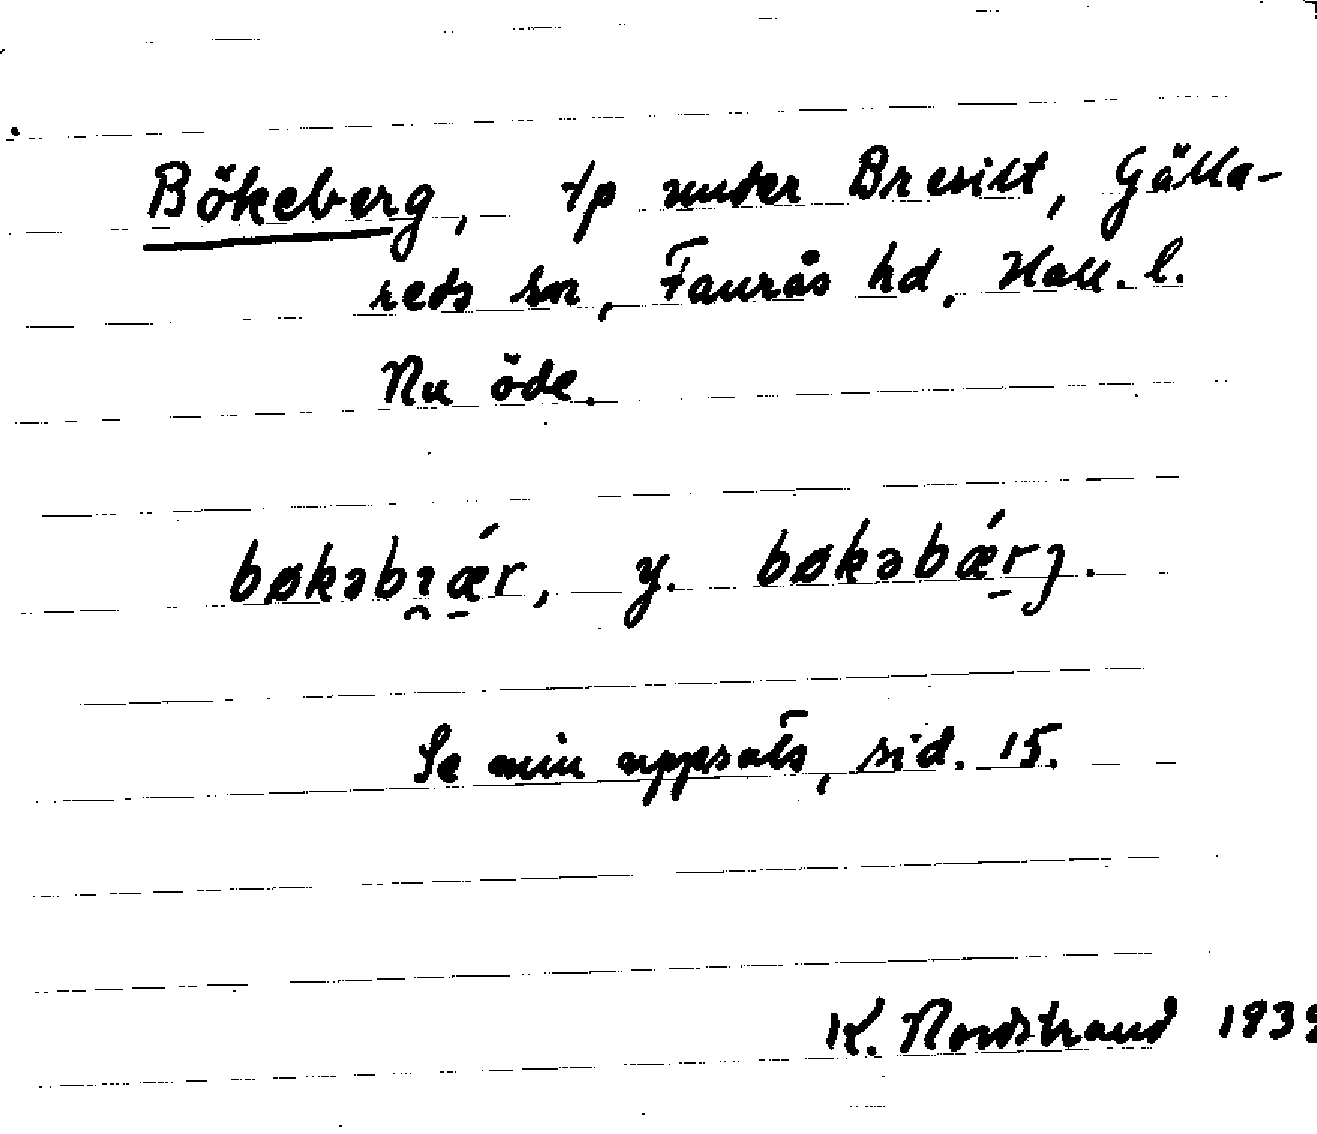 Bökeberg, tp under Bresilt, Gälla-
reds sn, Faurås hd, Hall. l.
Nu öde.
bøkəbı̯ǽ̠r, y. bøkəbǽ̠rȷ.
Se min uppsats, sid. 15.
K. Nordstrand